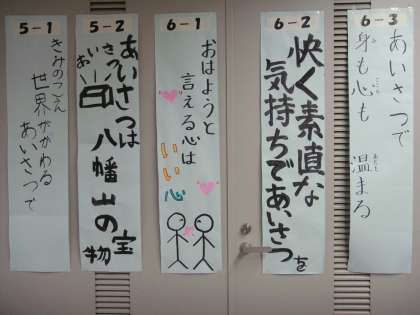 5-1
きみのこえ
世界がかわる
あいさつで
5-2
あいさつは
八幡山の
宝物
あい
さつ
6-1
おはようと
言える心は
いい心
6-2
快く素直な
気持ちであいさつを
6-3
あいさつで
身も心も
温まる